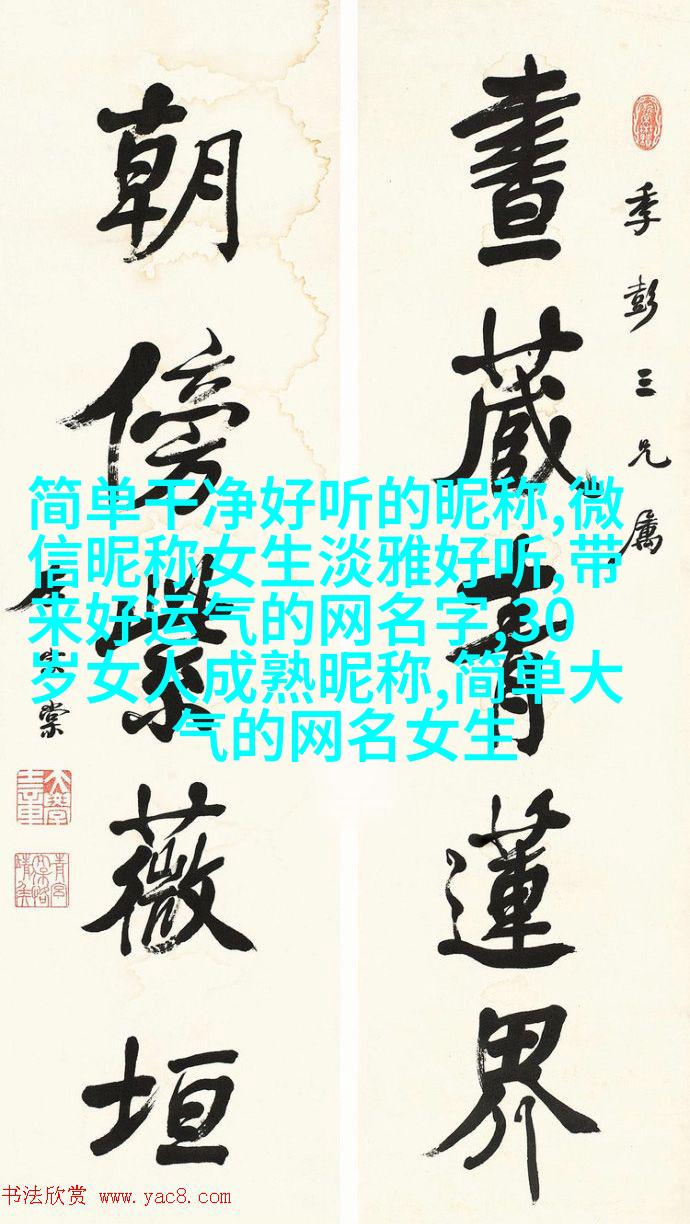 畫藏青蓮界
季彭三兄屬
朝傍紫薇垣
左宗棠
简单干净好听的昵称,微
信昵称女生淡雅好听,带
来好运气的网名字,30
岁女人成熟昵称,简单大
气的网名女生
书法欣赏 www.yac8.com